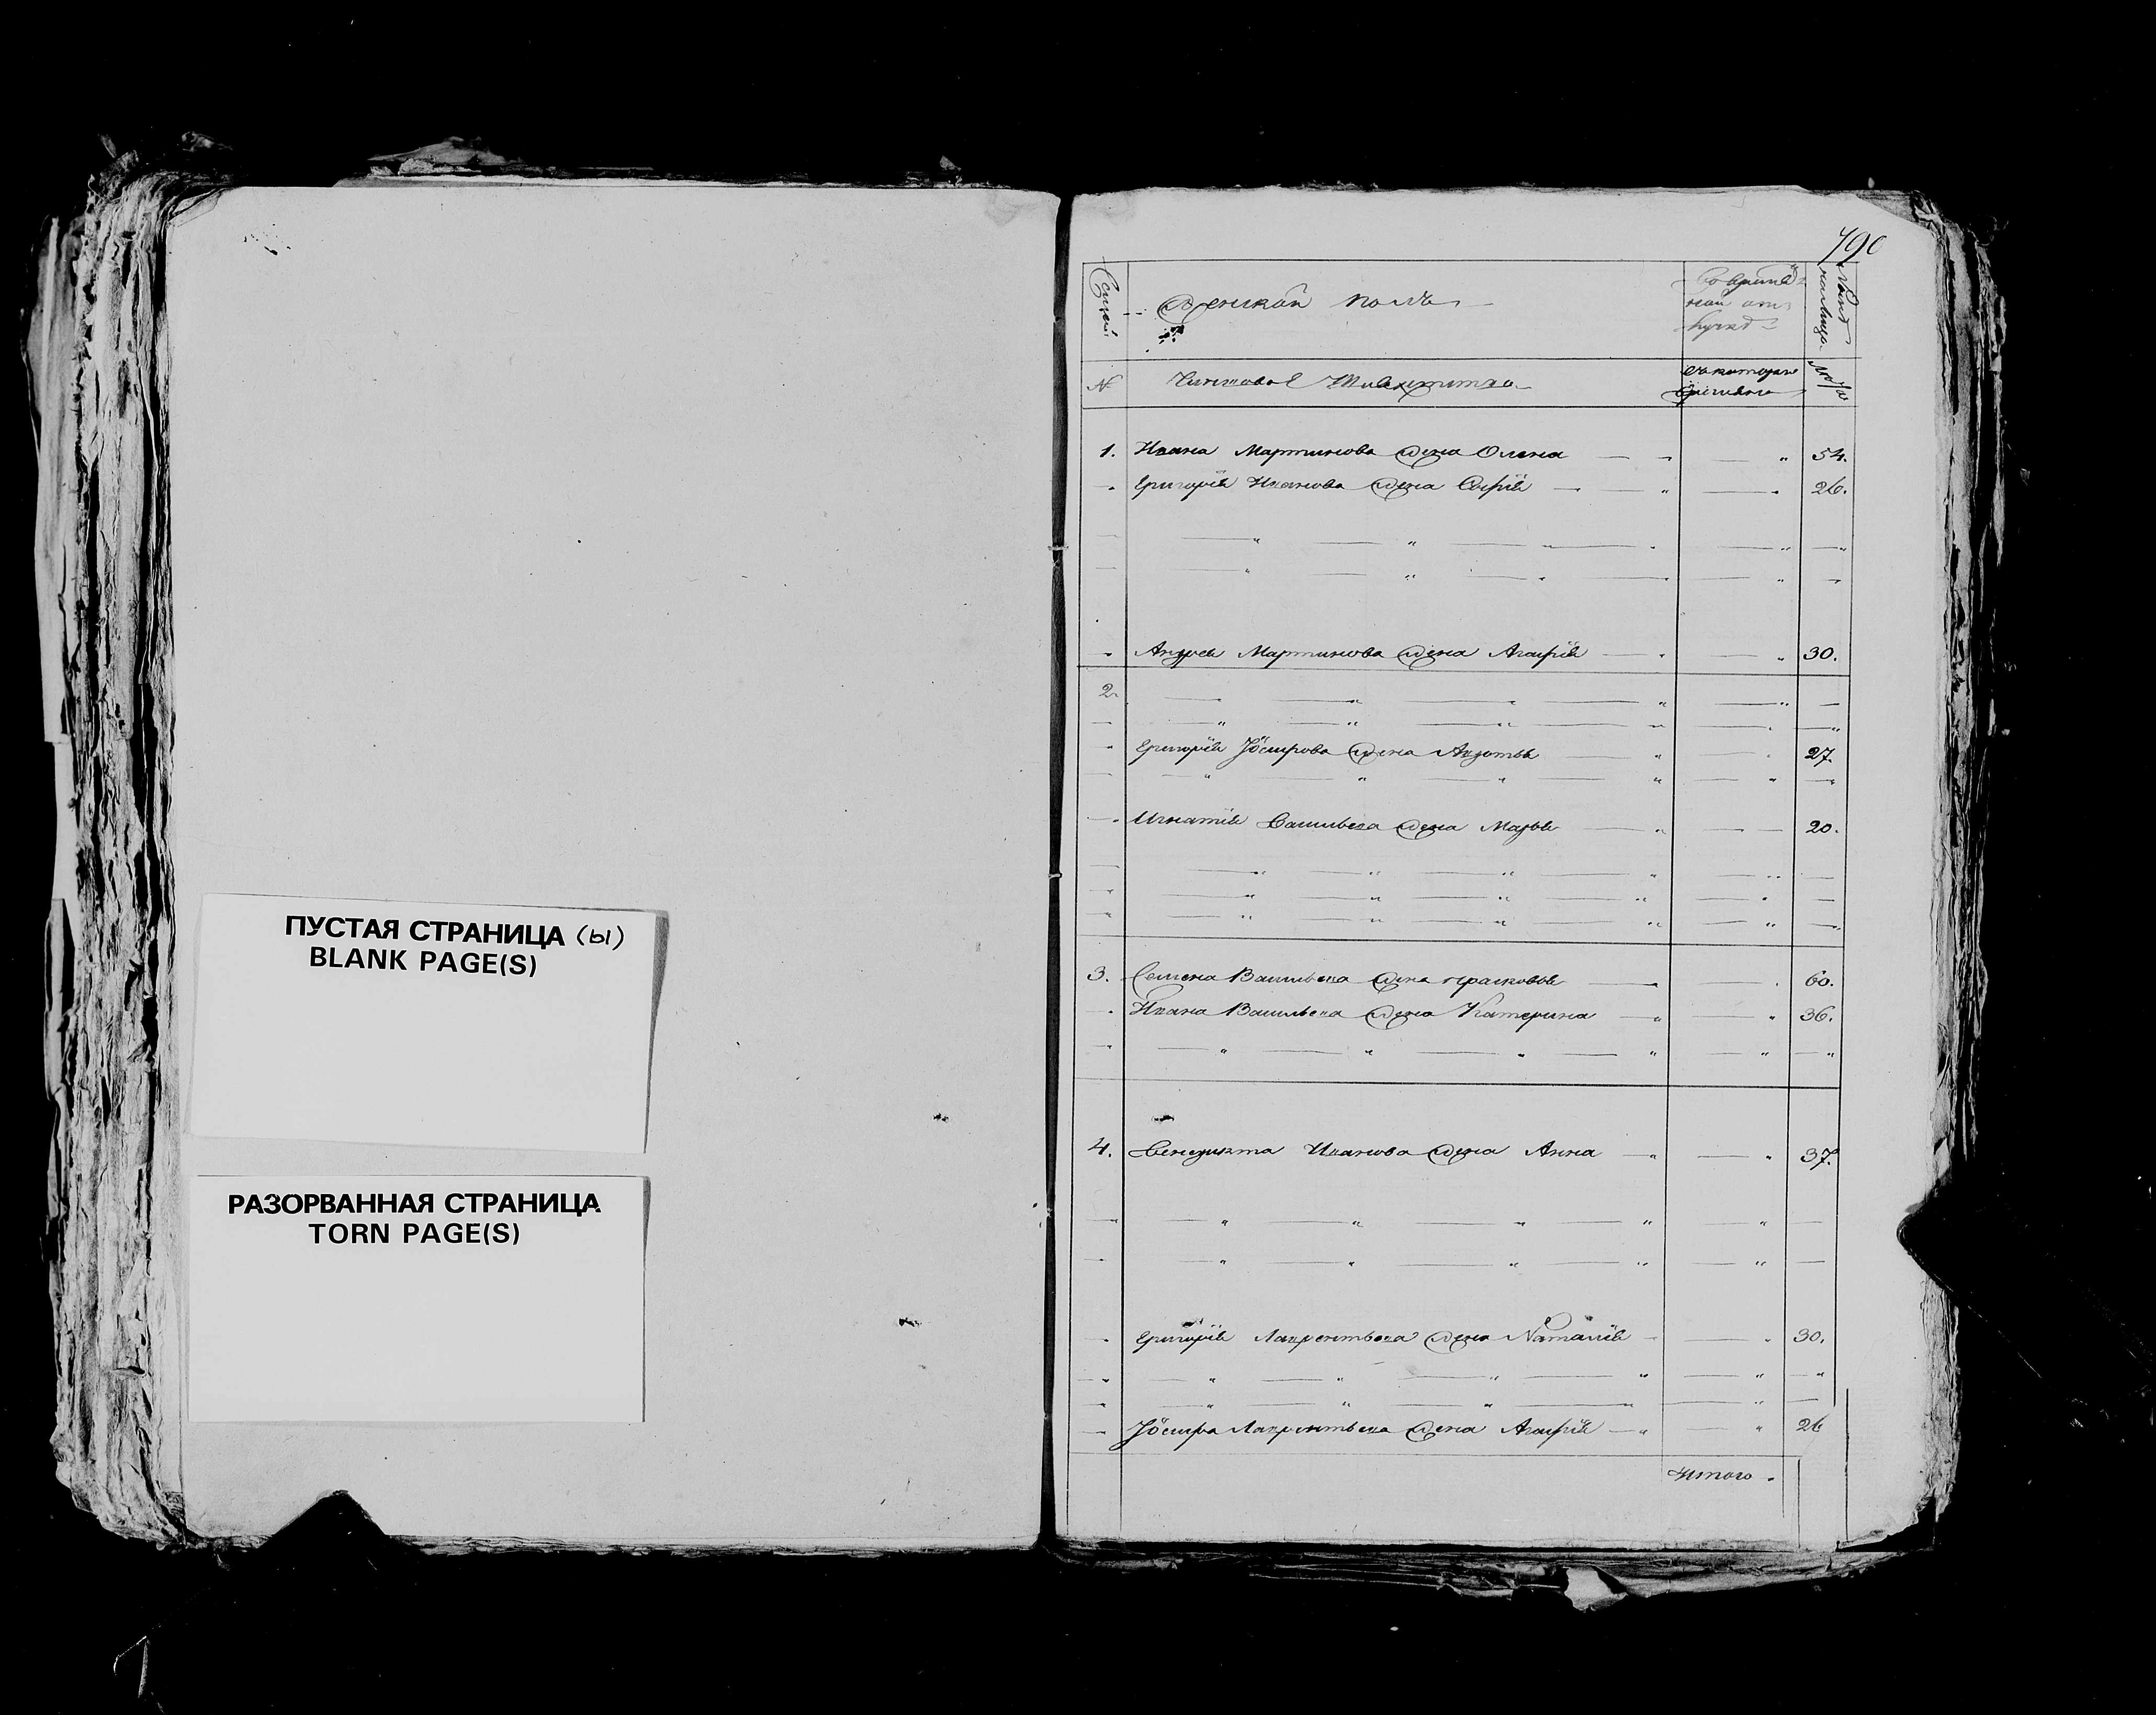 ПУСТАЯ СТРАНИЦА (ы)
BLANK PAGE(S)
РАЗОРВАННАЯ СТРАНИЦА
TORN PAGE(S)
Семей
Женскай полъ
Во время
№
Чиншовая Шляхта
Лѣта
1. Ивана Мартинова жена Олена 54.
Григорія Иванова жена Софія 26.
Андрея Мартинова жена Агафія 30.
2.
Григорія Іосифова жена Авдотья 27.
Игнатія Васильева жена Марья 20.
3. Семена Васильева жена Прасковья 60.
Ивана Васильева жена Катерина 36.
4. Венедикта Иванова жена Анна 37.
Григорія Лаврентьева жена Наталія 30.
Іосифа Лаврентьева жена Агафія 26
Итого